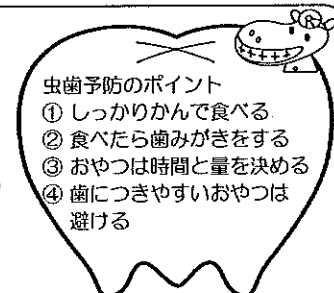 虫歯予防のポイント
① しっかりかんで食べる
② 食べたら歯みがきをする
③ おやつは時間と量を決める
④ 歯につきやすいおやつは
避ける